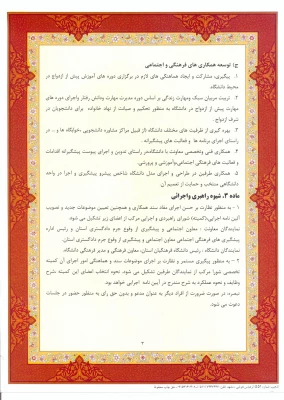 ج: توسعه همکاری های فرهنگی و اجتماعی
۱. پیگیری، مشارکت و ایجاد هماهنگی های لازم در برگزاری دوره های آموزش پیش از ازدواج در
محیط دانشگاه.
۲. تربیت مربیان سبک ومهارت زندگی بر اساس دوره مدیریت مهارت ودانش رفتار واجرای دوره های
مهارت پیش از ازدواج در دانشگاه به منظور تحکیم و صیانت از نهاد خانواده برای دانشجویان در
شرف ازدواج.
۳. بهره گیری از ظرفیت های مختلف دانشگاه (از قبیل مراکز مشاوره دانشجویی، خوابگاه ها و .. در
راستای اجرای برنامه ها و فعالیت های پیشگیرانه.
۴. همکاری فنی وتخصصی معاونت با دانشگاه در راستای تدوین و اجرای پیوست پیشگیرانه اقدامات
و فعالیت های اجتماعی وآموزشی و پرورشی.
۵. همکاری طرفین در طراحی و اجرای مدل دانشگاه شاخص پیشرو پیشگیری و اجرا در واحد
دانشگاهی منتخب و حمایت از تعمیم آن
ماده ۳. شیوه راهبری واجرائی
۱ - به منظور نظارت بر حسن اجرای مفاد سند همکاری و همچنین تعیین موضوعات جدید و تصویب
آئین نامه اجرایی، (کمیته) شورای راهبردی و اجرایی مرکب از اعضای زیر تشکیل می شود.
نمایندگان معاونت : معاون اجتماعی و پیشگیری از وقوع جرم دادگستری استان و رئیس اداره
پیشگیری های فرهنگی اجتماعی معاون اجتماعی و پیشگیری از وقوع جرم دادگستری استان.
نمایندگان دانشگاه : رئیس دانشگاه فرهنگیان استان، معاون فرهنگی و مدیر فرهنگی دانشگاه.
۲ - به منظور پیگیری مستمر و نظارت بر اجرای موضوعات سند و هماهنگی امور اجرای آن کمیته
تخصصی شورا مرکب از نمایندگان طرفین تشکیل می شود. نحوه انتخاب اعضای این کمیته شرح
وظایف و نحوه عملکرد به شرح مندرج در آیین نامه اجرایی خواهد بود.
تبصره: در صورت ضرورت از افراد دیگر به عنوان مدعو و بدون حق رای به منظور حضور در جلسات
دعوت می شود.
۳